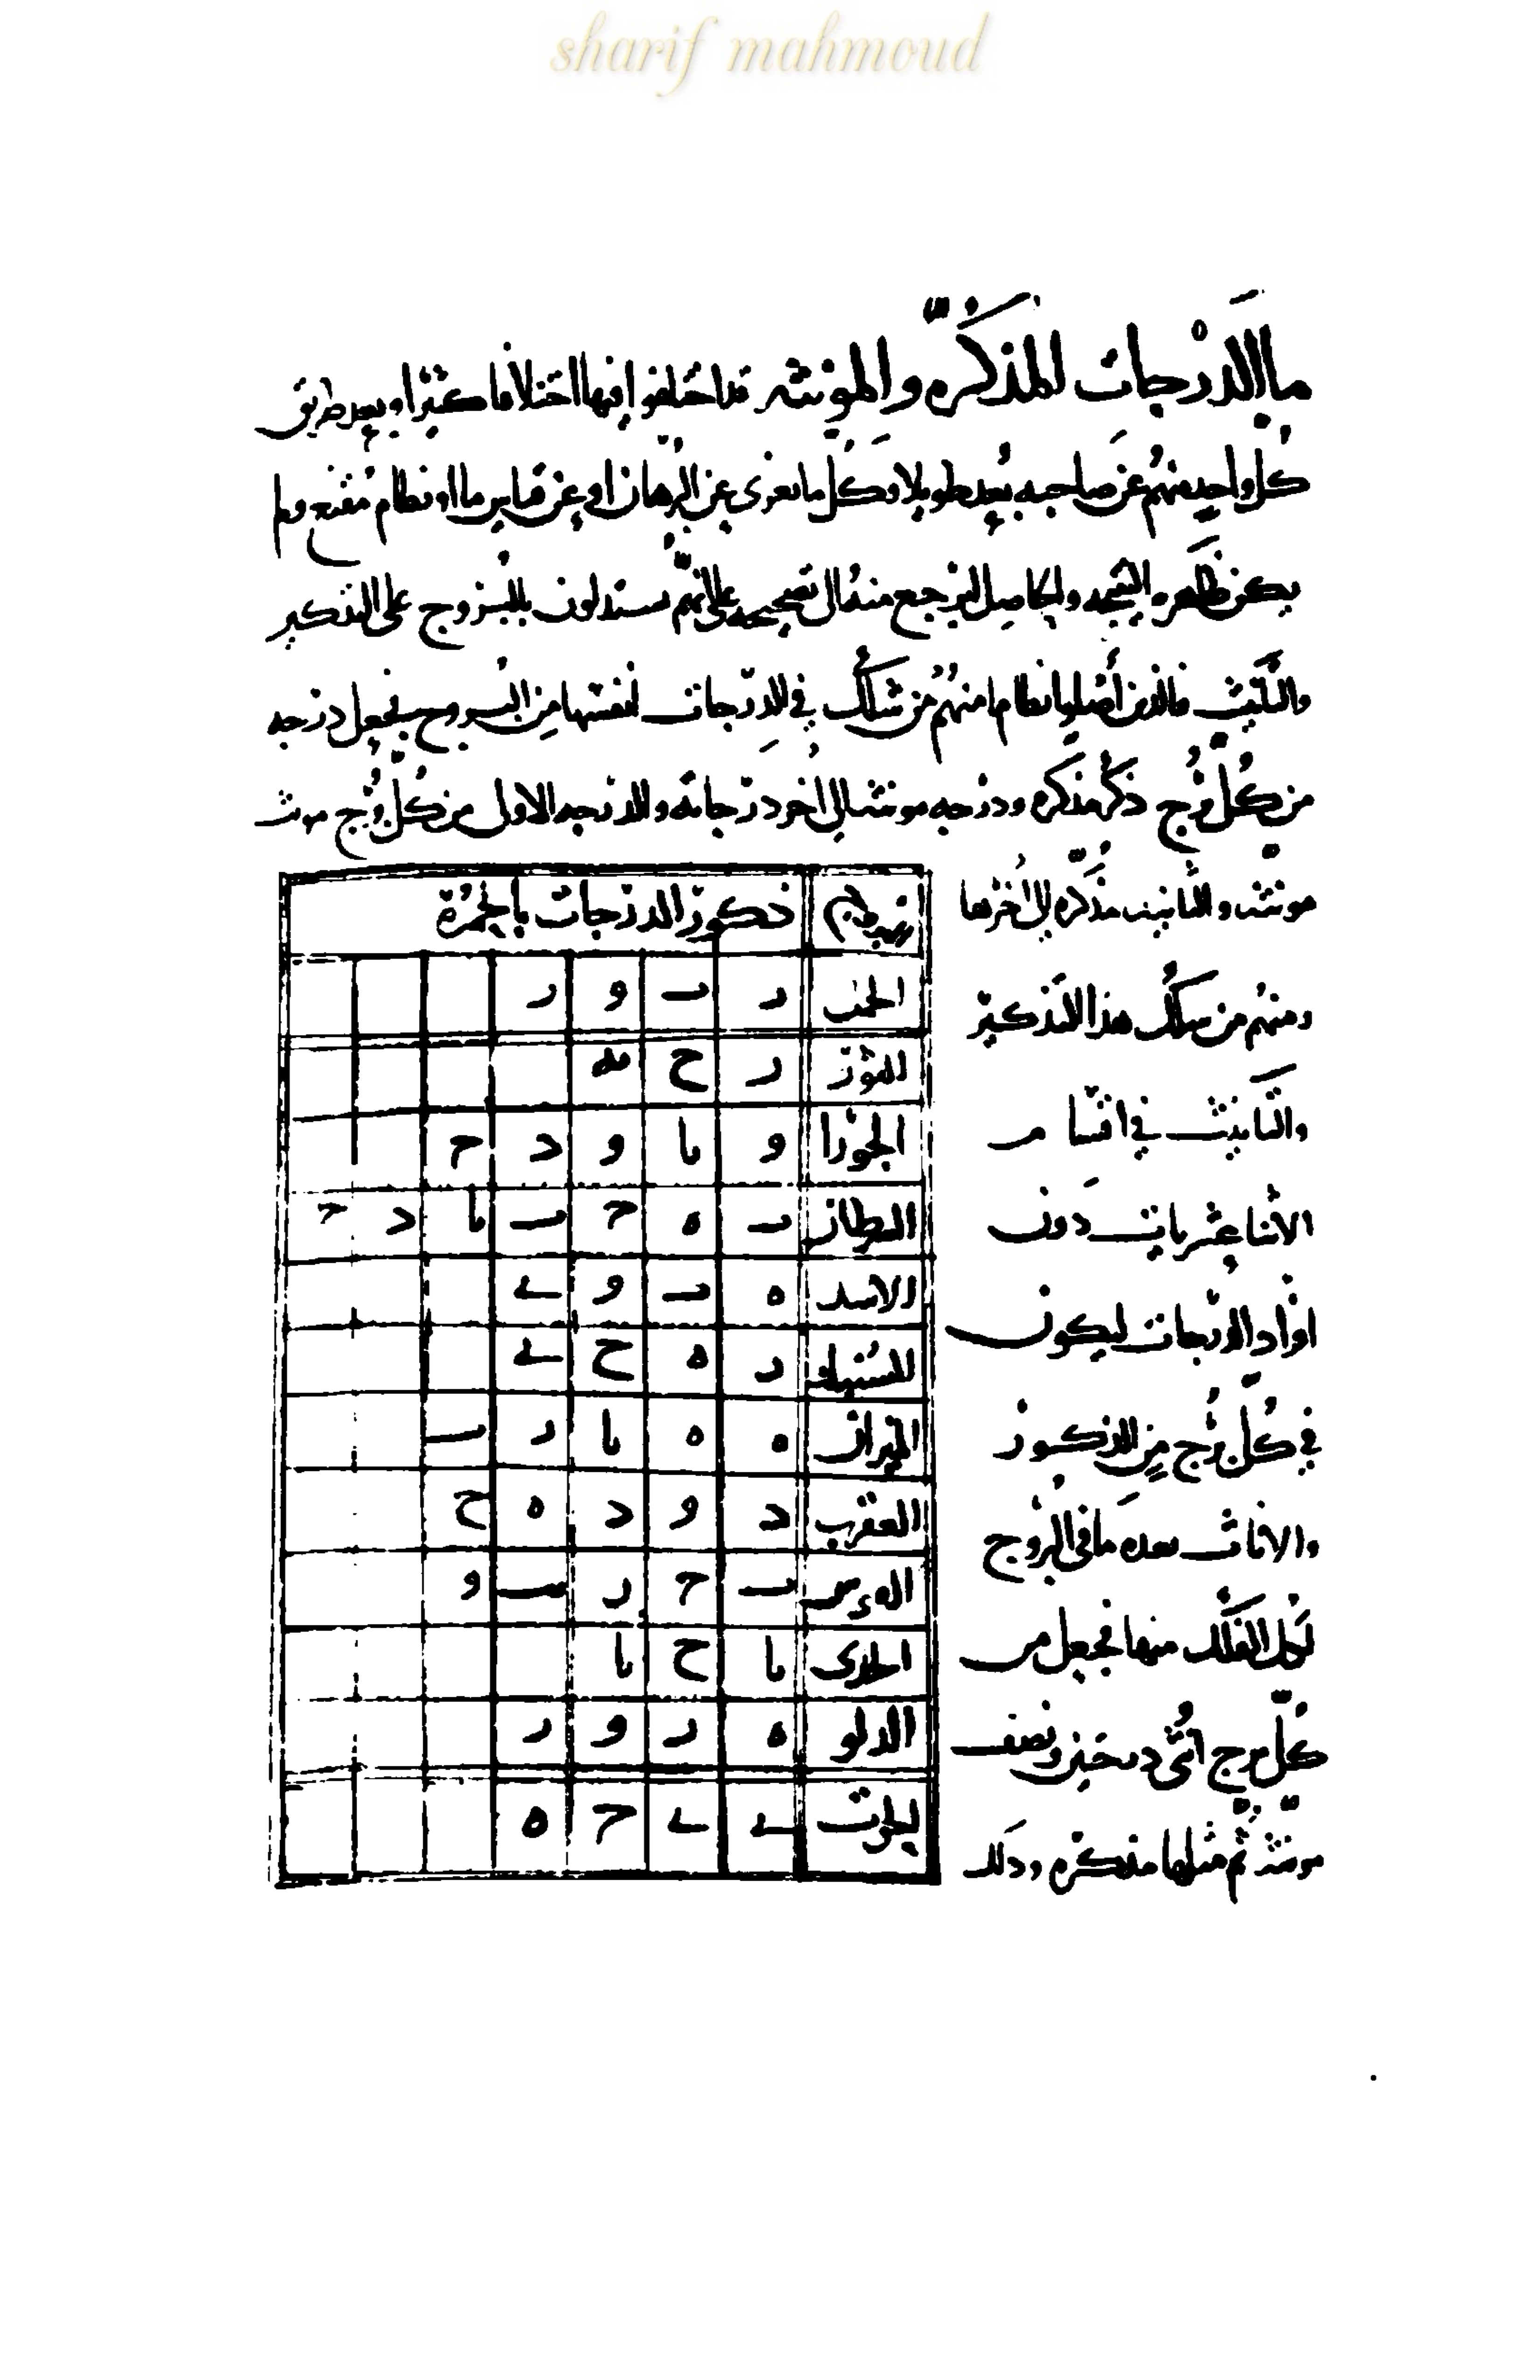 sharif mahmoud
ما الدرجات المذكره والمونثه قد اختلفوا فيها اختلافا كثيرا وبعد طريق
كل واحد منهم عن صاحبه بعدا طويلا وكل ما تعرى عن البرهان او عن قياس ما او نظام مقنع ولم
يكن ظاهره والحاصل لم يرجع منه الى تصحيح على انهم يستدلون بالبروج على التذكير
والتانيث فالذين نظاما منهم من سلك في الدرجات نفسها من البروج فجعل درجه
من كل برج ذكر مذكره ودرجه مونثه الى اخر درجاته والدرجه الاولى من كل برج مونث
مونثه والثانيه مذكره الى اخرها
ومنهم من سلك هذا التذكير
والتانيث في اقسام
الاثنا عشريات دون
افراد الدرجات ليكون
في كل برج من الذكور
والاناث بعده ما في البروج
الفلك منها فجعل من
كل برج انثى درجتين ونصف
مونثه ثم مثلها مذكره وذلك
ذكور الدرجات بالحمرة
الحمل ر ب و ر
الثور ر ح
الجوزا و ىا و د ح
السرطان ب ه ح ب ىا د ح
الاسد ه ب و ى
السنبله ر ه ح ى
الميزان ه ه ىا ر ب
العقرب د و د ه ح
القوس ب ح ر ب و
الجدى ىا ح ىا
الدلو ه ر و ر
الحوت ى ى ح ه